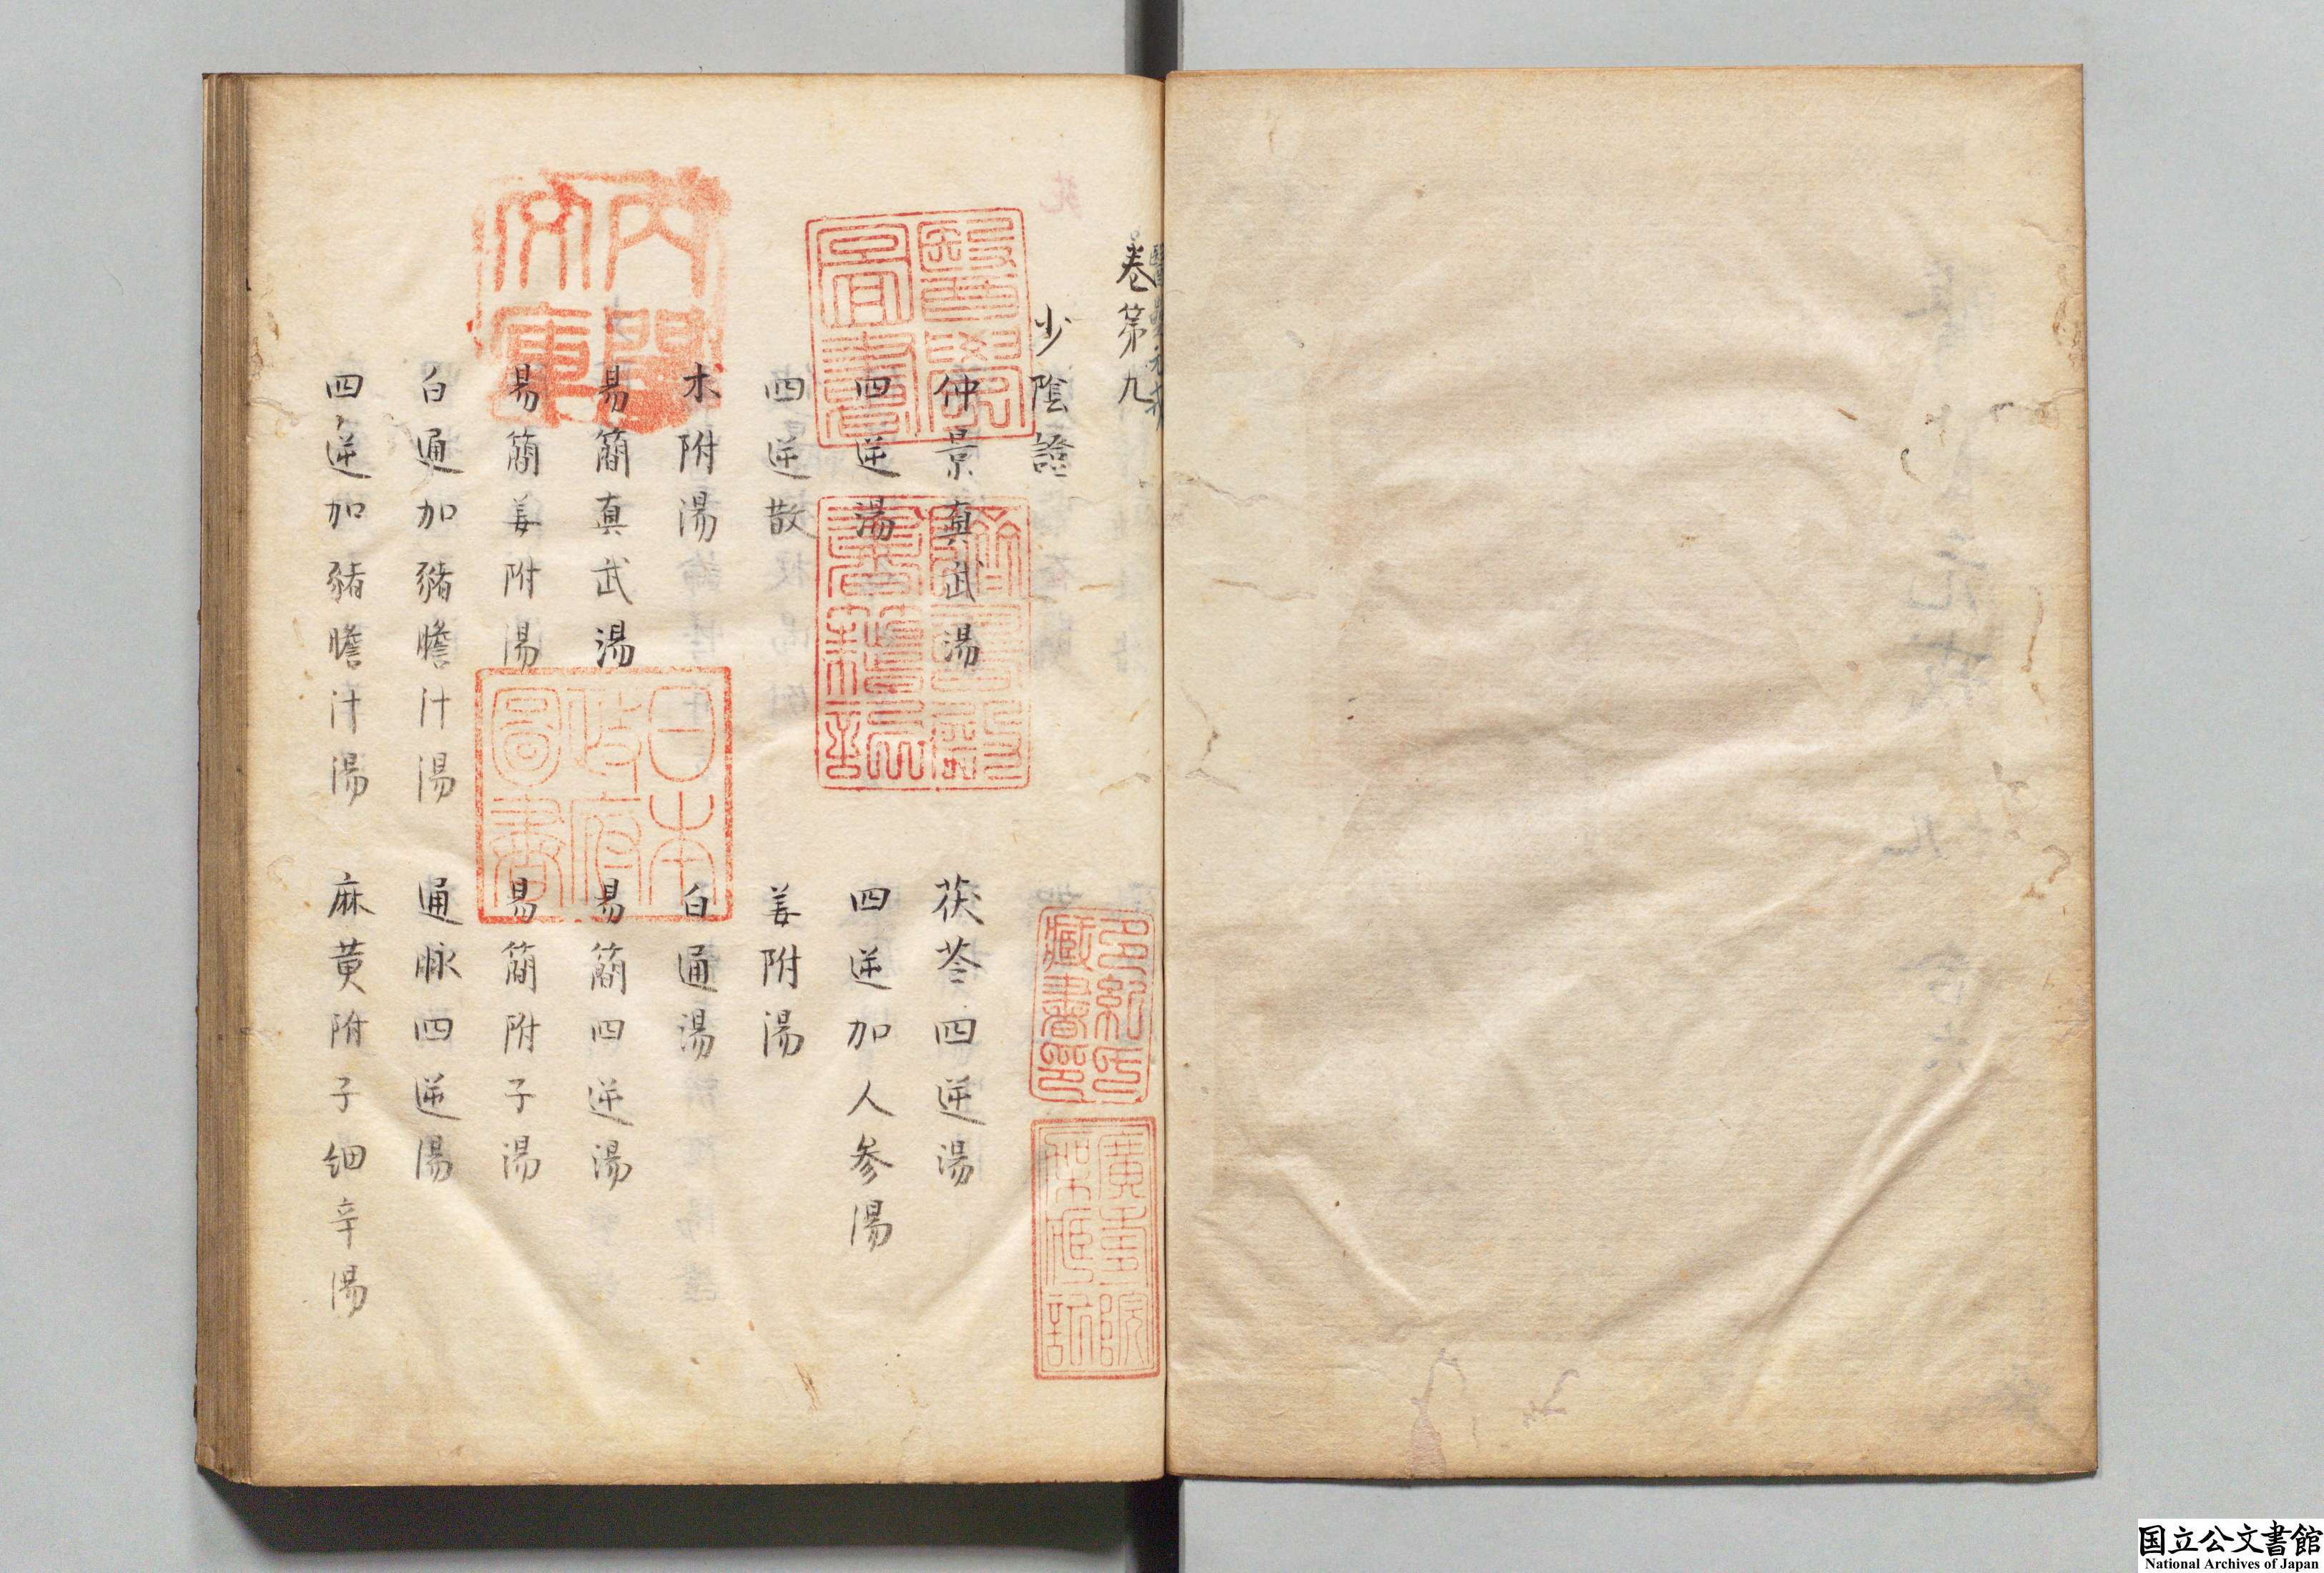 卷第九
少陰證
仲景真武湯　茯苓四逆湯
四逆湯　四逆加人参湯
四逆散　姜附湯
木附湯　白通湯
易簡真武湯　易簡四逆湯
易簡姜附湯　易簡附子湯
白通加豬膽汁湯　通脉四逆湯
四逆加豬膽汁湯　麻黄附子細辛湯
醫學圖書
躋壽殿書籍記
多紀氏藏書印
廣壽院架蔵記
内閣文庫
日本政府圖書
国立公文書館
National Archives of Japan